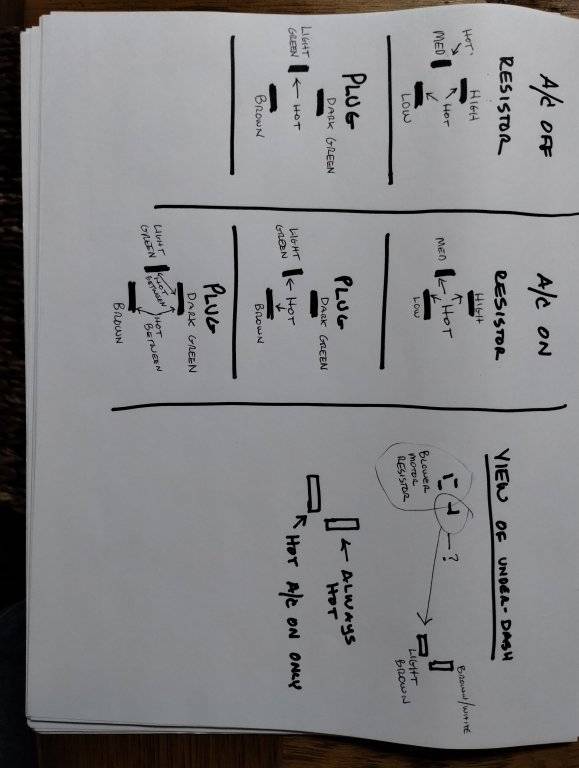 A/C OFF
RESISTOR
HOT.
MED
HIGH
HOT
LOW
PLUG
LIGHT
GREEN
DARK GREEN
HOT
BROWN
A/C ON
RESISTOR
MED
HIGH
HOT
LOW
PLUG
LIGHT
GREEN
DARK GREEN
HOT
BROWN
PLUG
LIGHT
GREEN
DARK GREEN
HOT
BETWEEN
HOT
BETWEEN
BROWN
VIEW OF UNDER-DASH
?
BLOWER
MOTOR
RESISTOR
BROWN/WHITE
LIGHT
BROWN
ALWAYS
HOT
HOT A/C ON ONLY